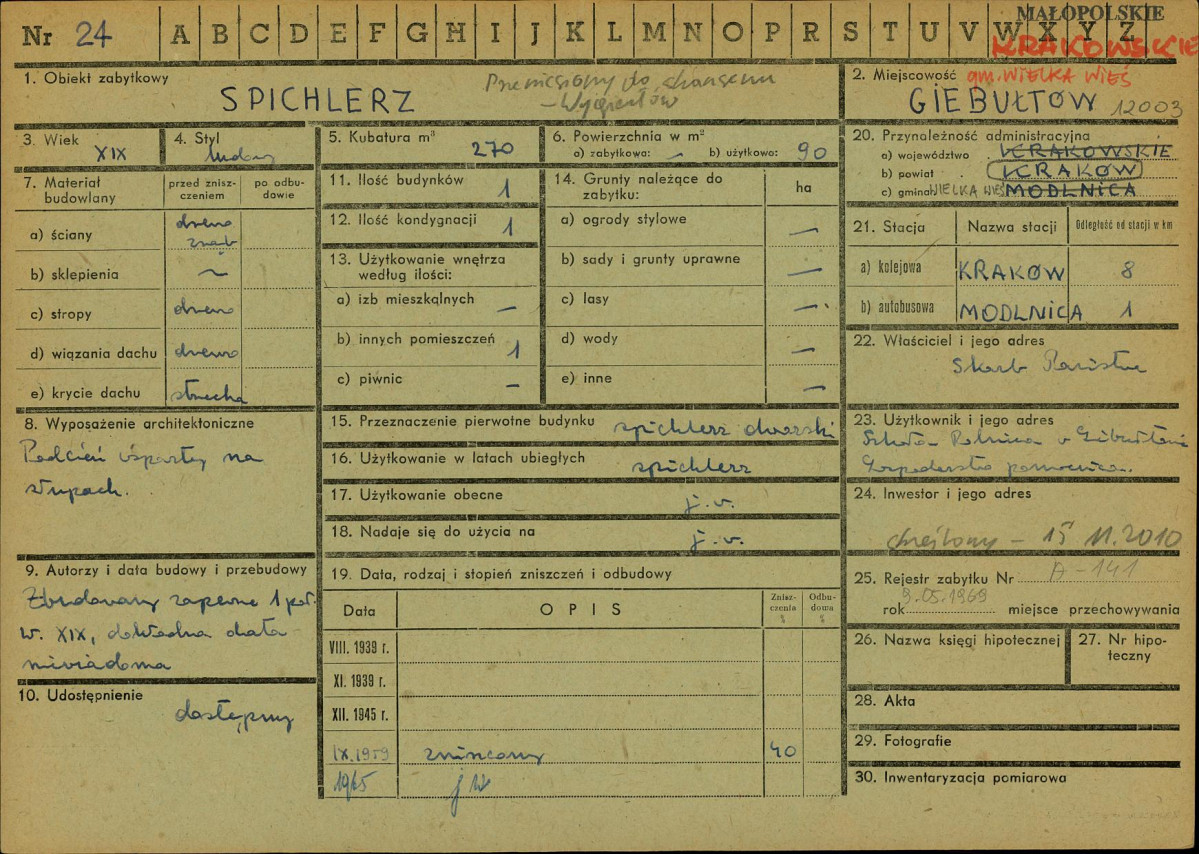 MAŁOPOLSKIE
Nr 24 A B C D E F G H I J K L M N O P R S T U V W X Y Z
KRAKOWSKIE
1. Obiekt zabytkowy
SPICHLERZ
Przeniesiony do skansenu
- Wygiełzów
2. Miejscowość gm. WIELKA WIEŚ
GIEBUŁTÓW 12003
3. Wiek
XIX
4. Styl
ludowy
5. Kubatura m³
270
6. Powierzchnia w m²
a) zabytkowa: — b) użytkowa: 90
7. Materiał budowlany
przed znisz-
czeniem
po odbu-
dowie
a) ściany drewno
zrąb
b) sklepienia —
c) stropy drewno
d) wiązania dachu drewno
e) krycie dachu strzecha
8. Wyposażenie architektoniczne
Podcień wsparty na
słupach.
9. Autorzy i data budowy i przebudowy
Zbudowany zapewne 1 poł.
w. XIX, dokładna data
niewiadoma
10. Udostępnienie
dostępny
11. Ilość budynków 1
12. Ilość kondygnacji 1
13. Użytkowanie wnętrza
według ilości:
a) izb mieszkalnych —
b) innych pomieszczeń 1
c) piwnic —
14. Grunty należące do
zabytku:
ha
a) ogrody stylowe —
b) sady i grunty uprawne —
c) lasy —
d) wody —
e) inne —
15. Przeznaczenie pierwotne budynku spichlerz dworski
16. Użytkowanie w latach ubiegłych spichlerz
17. Użytkowanie obecne j.w.
18. Nadaje się do użycia na j.w.
19. Data, rodzaj i stopień zniszczeń i odbudowy
Data
OPIS
Znisz-
czenia
%
Odbu-
dowa
%
VIII. 1939 r.
XI. 1939 r.
XII. 1945 r.
IX.1959 zniszczony 40
1965 j w
20. Przynależność administracyjna
a) województwo KRAKOWSKIE
b) powiat KRAKÓW
c) gmina WIELKA WIEŚ MODLNICA
21. Stacja
Nazwa stacji
Odległość od stacji w km
a) kolejowa KRAKÓW 8
b) autobusowa MODLNICA 1
22. Właściciel i jego adres
Skarb Państwa
23. Użytkownik i jego adres
Szkoła Rolnicza w Giebułtowie
Gospodarstwo pomocnicze.
24. Inwestor i jego adres
skreślony - 15 11.2010
25. Rejestr zabytku Nr A-141
rok 9.05.1969 miejsce przechowywania
26. Nazwa księgi hipotecznej
27. Nr hipo-
teczny
28. Akta
29. Fotografie
30. Inwentaryzacja pomiarowa